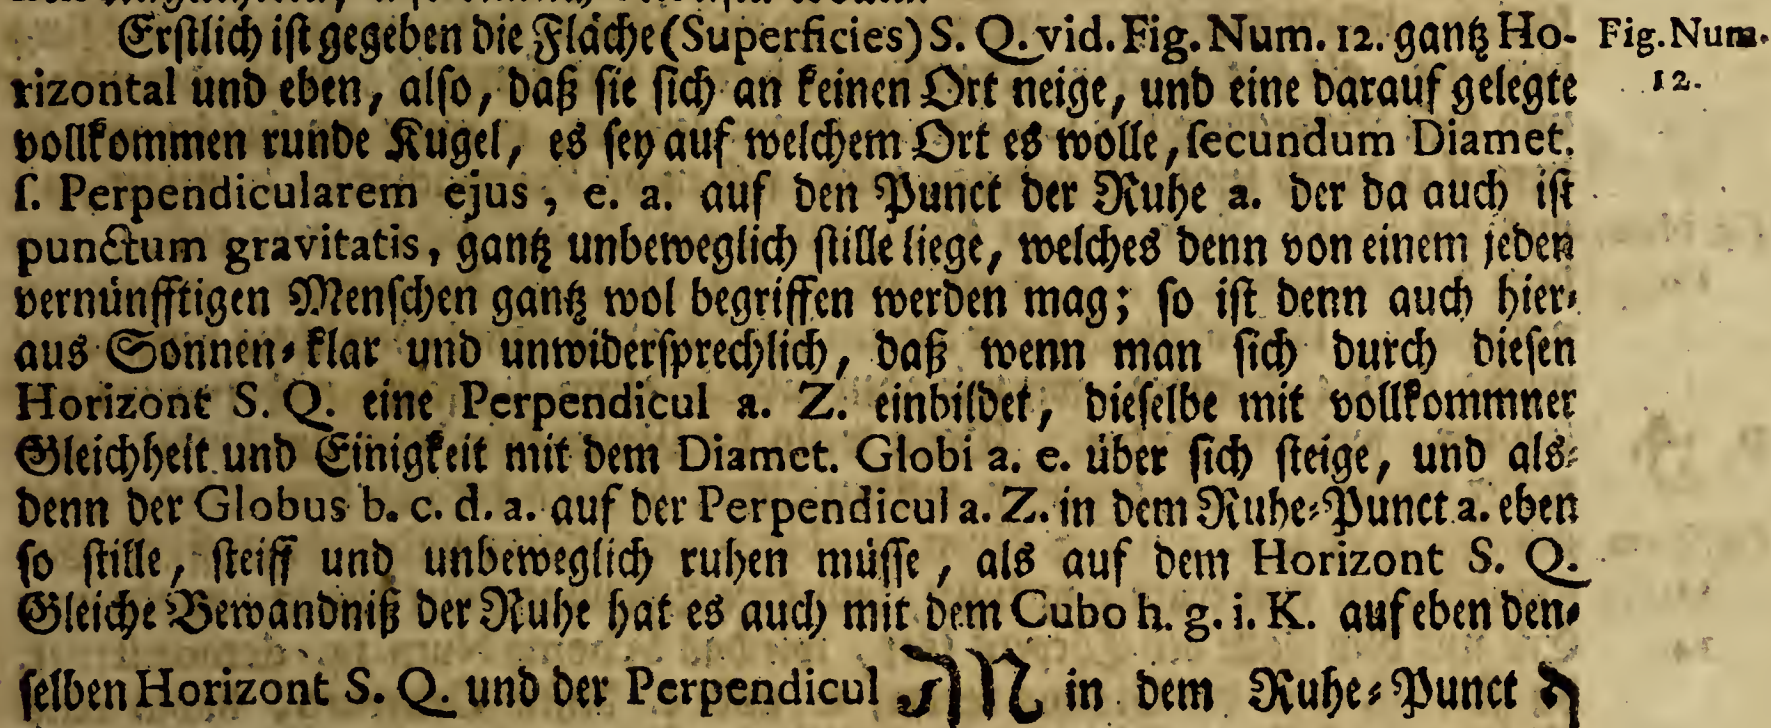 Erſtlich iſt gegeben die Fläche (Superficies) S. Q. vid. Fig. Num. 12. gantz Ho-
rizontal und eben, alſo, daß ſie ſich an keinen Ort neige, und eine darauf gelegte
vollkommen runde Kugel, es ſey auf welchem Ort es wolle, ſecundum Diamet.
ſ. Perpendicularem ejus, e. a. auf den Punct der Ruhe a. der da auch iſt
punctum gravitatis, gantz unbeweglich ſtille liege, welches denn von einem jeden
vernünfftigen Menſchen gantz wol begriffen werden mag; ſo iſt denn auch hier-
aus Sonnen-klar und unwiderſprechlich, daß wenn man ſich durch dieſen
Horizont S. Q. eine Perpendicul a. Z. einbildet, dieſelbe mit vollkommner
Gleichheit und Einigkeit mit dem Diamet. Globi a. e. über ſich ſteige, und als-
denn der Globus b. c. d. a. auf der Perpendicul a. Z. in dem Ruhe-Punct a. eben
ſo ſtille, ſteiff und unbeweglich ruhen müſſe, als auf dem Horizont S. Q.
Gleiche Bewandniß der Ruhe hat es auch mit dem Cubo h. g. i. K. auf eben den-
ſelben Horizont S. Q. und der Perpendicul in dem Ruhe-Punct
Fig. Num.
12.